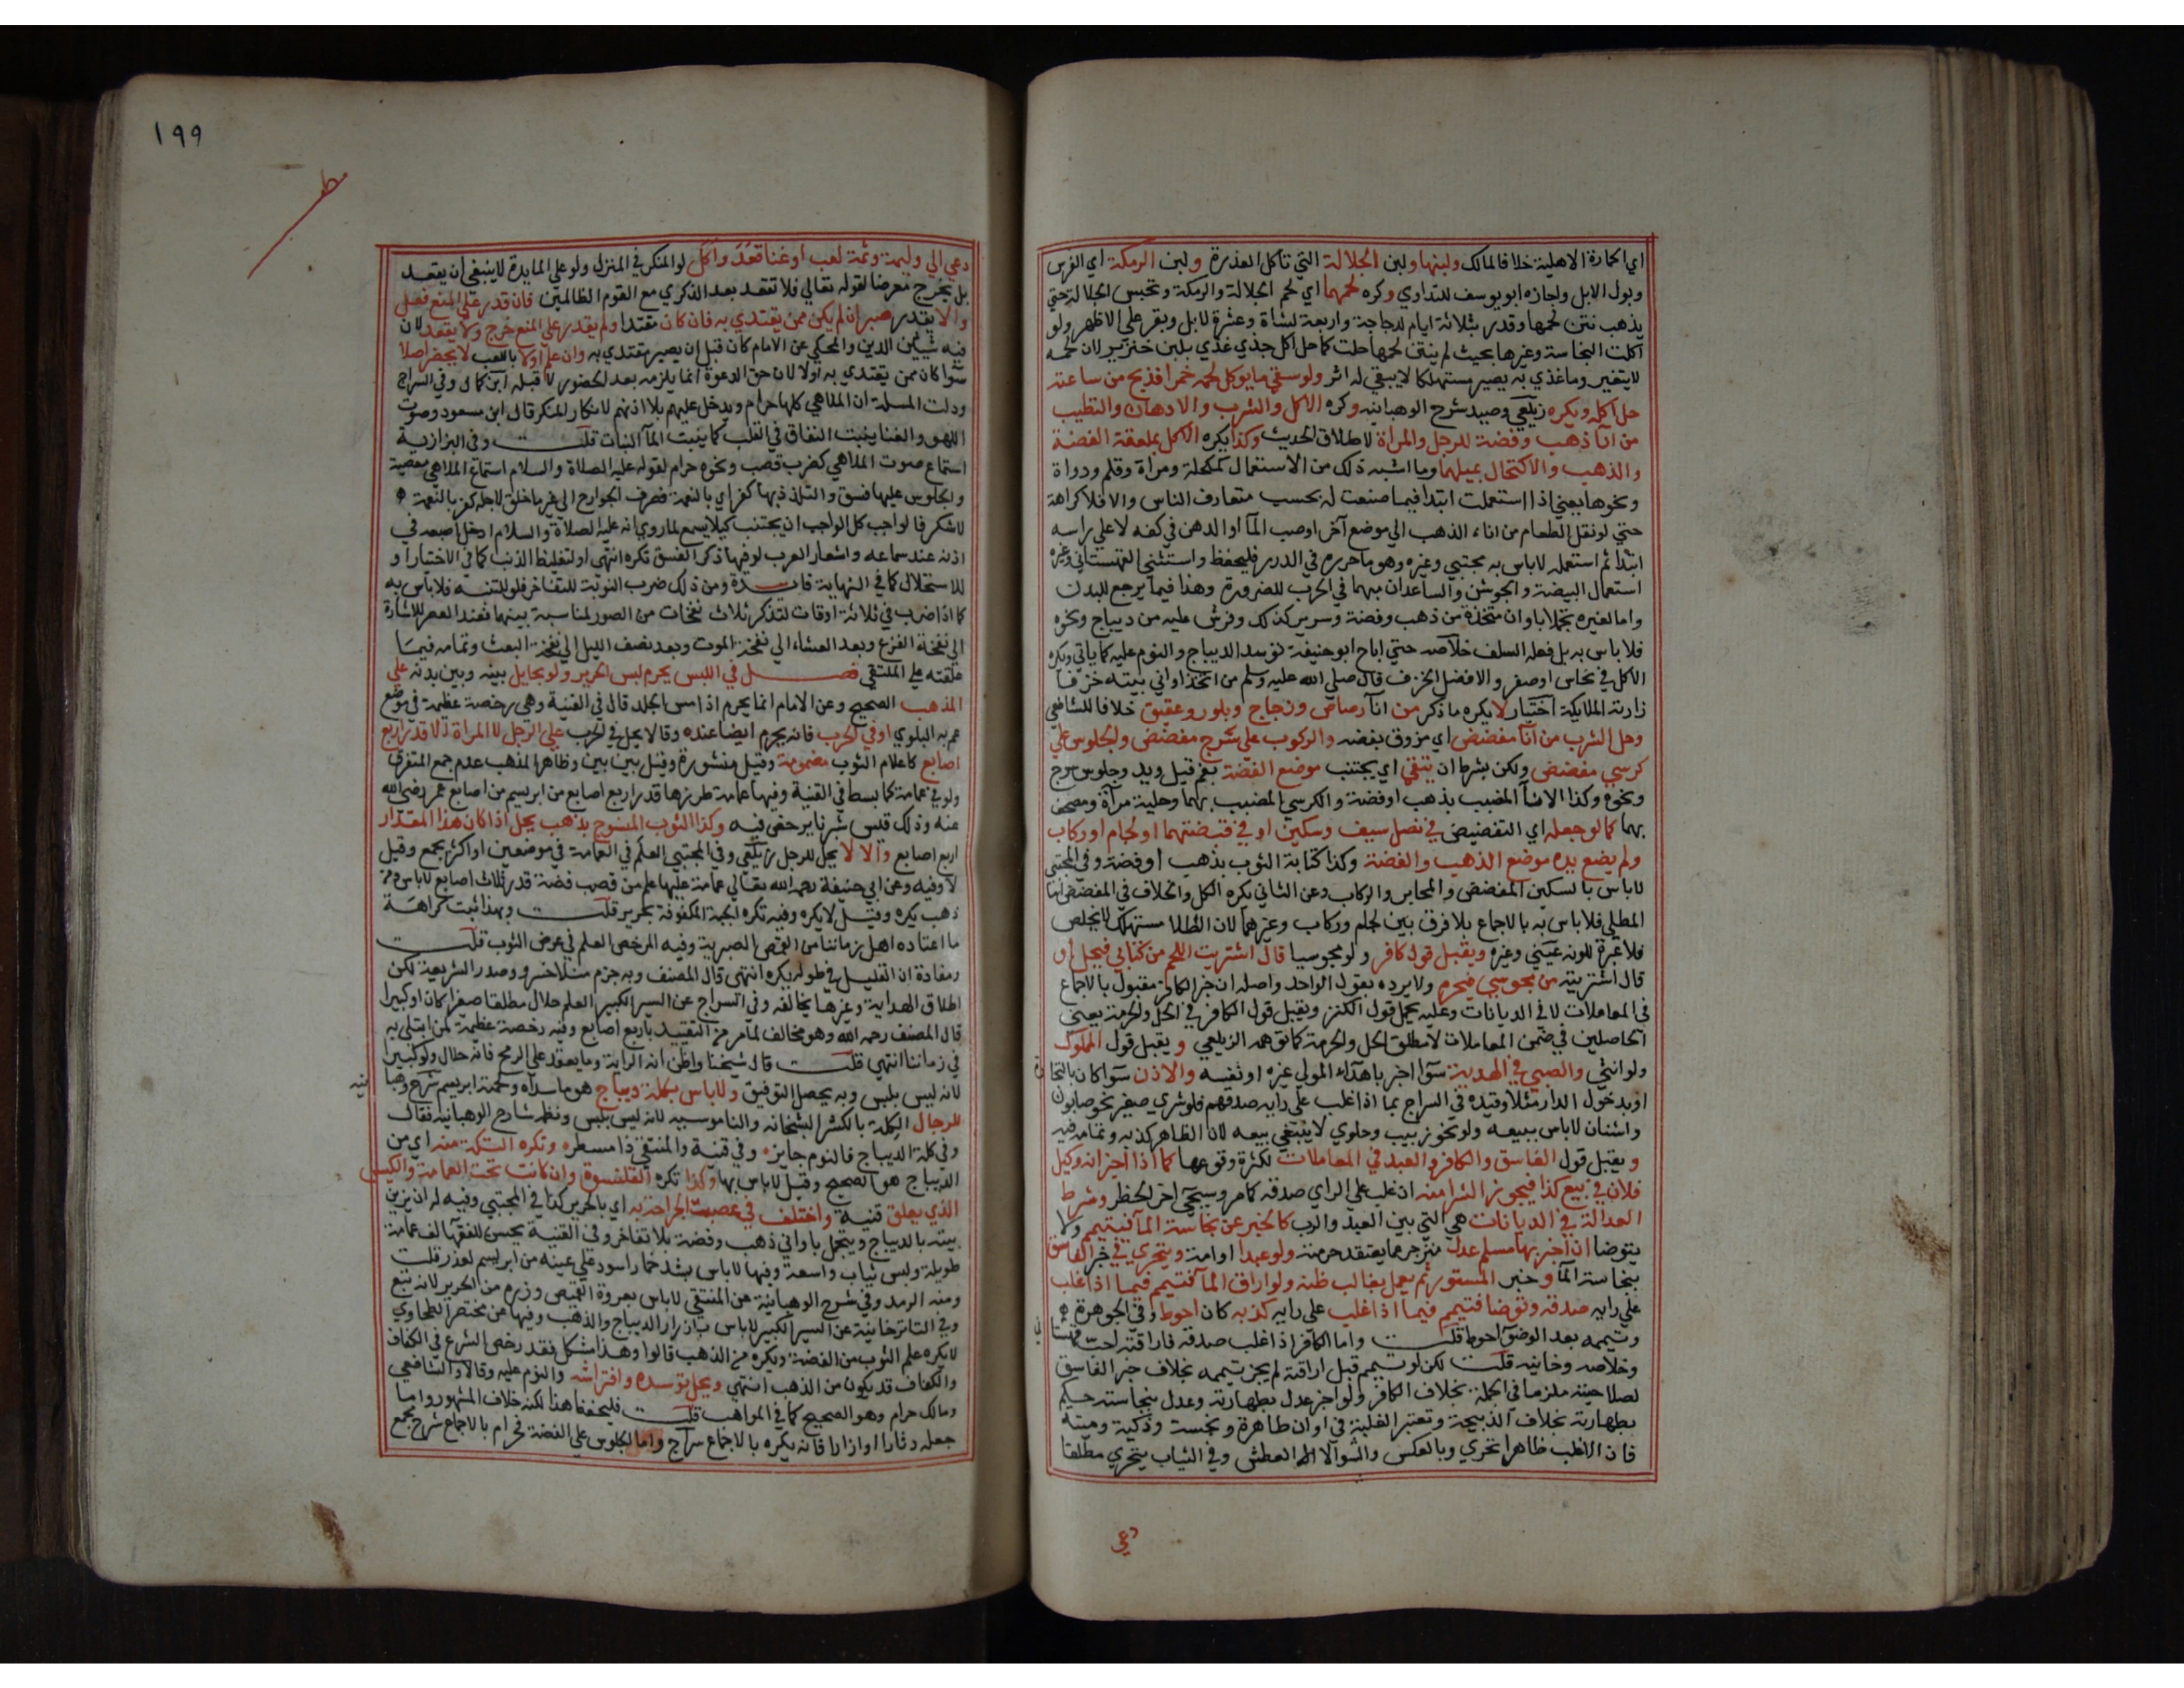 اي الحمارة الاهلية خلافا لمالك ولبنها ولبن الجلالة التي تاكل العذرة ولبن الرمكة اي الفرس
وبول الابل واجازه ابو يوسف للتداوي وكره لحمهما اي لحم الجلالة والرمكة وتحبس الجلالة حتي
يذهب نتن لحمها وقدر بثلاثة ايام لدجاجة واربعة لشاة وعشرة لابل وبقر علي الاظهر ولو
اكلت النجاسة وغيرها بحيث لم ينتن لحمها حلت كما حل اكل جذي غذي بلبن خنزير لان لحمه
لا يتغير وما غذي به يصير مستهلكا لا يبقي له اثر ولو سقي ما يوكل لحمه خمرا فذبح من ساعته
حل اكله ويكره زيلعي وصيد شرح الوهبانيه وكره الاكل والشرب والادهان والتطيب
من انآ ذهب وفضة للرجل والمراة لاطلاق الحديث وكذا يكره الاكل بملعقة الفضة
والذهب والاكتحال بميلهما وما اشبه ذلك من الاستعمال كمكحلة ومراة وقلم ودواة
ونحوها يعني اذا استعملت ابتدا فيما صنعت له بحسب متعارف الناس والا فلا كراهة
حتي لو نقل الطعام من اناء الذهب الي موضع آخر او صب المآ او الدهن في كفه لا علي راسه
ابتدا ثم استعمله لا باس به مجتبي وغيره وهو ما حرره في الدرر فليحفظ واستثني القهستاني وغيره
استعمال البيضة والجوشن والساعدان منهما في الحرب للضرورة وهذا فيما يرجع للبدن
واما لغيره تجملا باوان متخذة من ذهب وفضة وسرير كذلك وفرش عليه من ديباج ونحوه
فلا باس به بل فعله السلف خلاصه حتي اباح ابو حنيفة توسد الديباج والنوم عليه كما ياتي ويكره
الاكل في نحاس او صفر والافضل الخزف قال صلي الله عليه وسلم من اتخذ اواني بيته خزفا
زارته الملايكة اختيار لا يكره ما ذكر من انآ رصاص وزجاج وبلور وعقيق خلافا للشافعي
وحل الشرب من انآ مفضض اي مزوق بفضه والركوب علي سرج مفضض والجلوس علي
كرسي مفضض ولكن بشرط ان يتقي اي يجتنب موضع الفضة بفم قيل ويد وجلوس سرج
ونحوه وكذا الانآ المضبب بذهب او فضة والكرسي المضبب بهما وحلية مرآة ومصحف
بهما كما لو جعله اي التفضيض في نصل سيف وسكين او في قبضتهما او لجام او ركاب
ولم يضع يده موضع الذهب والفضة وكذا كتابة الثوب بذهب او فضة وفي المجتبي
لا باس بالسكين المفضض والمحابر والركاب وعن الثاني يكره الكل والخلاف في المفضض اما
المطلي فلا باس به بالاجماع بلا فرق بين لجام وركاب وغيرهما لان الطلا مستهلك لا يخلص
فلا عبرة للونه عيني وغيره ويقبل قول كافر ولو مجوسيا قال اشتريت اللحم من كتابي فيحل او
قال اشتريته من مجوسي فيحرم ولا يرده بقول الواحد واصله ان خبر الكافر مقبول بالاجماع
في المعاملات لا في الديانات وعليه يحمل قول الكنز ويقبل قول الكافر في الحل والحرمة يعني
الحاصلين في ضمن المعاملات لا مطلق الحل والحرمة كما توهمه الزيلعي ويقبل قول المملوك
ولو انثي والصبي في الهدية سوآ اخبر باهدآء المولي غيره او نفسه والاذن سوآ كان بالتجا
او بدخول الدار مثلا وقيده في السراج بما اذا غلب علي رايه صدقهم فلو شري صغير نحو صابون
واشنان لا باس ببيعه ولو نحو زبيب وحلوي لا ينبغي بيعه لان الظاهر كذبه وتمامه فيه
ويقبل قول الفاسق والكافر والعبد في المعاملات لكثرة وقوعها كما اذا اخبر انه وكيل
فلان في بيع كذا فيجوز الشرا منه ان غلب علي الراي صدقه كما مر وسيجي اخر الحظر وشرط
العدالة في الديانات هي التي بين العبد والرب كالخبر عن نجاسة المآ فيتيمم ولا
يتوضا ان اخبر بها مسلم عدل منزجر عما يعتقد حرمته ولو عبدا او امة ويتحري في خبر الفاسق
بنجاسة المآ وخبر المستور ثم يعمل بغالب ظنه ولو اراق المآ فتيمم فيما اذا غلب
علي رايه صدقه وتوضا فتيمم فيما اذا غلب علي رايه كذبه كان احوط وفي الجوهرة
وتيممه بعد الوضو احوط قلت واما الكافر اذا غلب صدقه فاراقته احب
وخلاصه وخانيه قلت لكن لو تيمم قبل اراقته لم يجز تيممه بخلاف خبر الفاسق
لصلاحيته ملزما في الجملة بخلاف الكافر ولو اخبر عدل بطهارته وعدل بنجاسته حكم
بطهارته بخلاف الذبيحة وتعتبر الغلبة في اوان طاهرة ونجسة وذكية وميتة
فان الاغلب طاهرا تحري وبالعكس والسوآ لا الا لعطش وفي الثياب يتحري مطلقا
دعي
١٩٩
مط
دعي الي وليمة وثمة لعب او غنا قعد واكل لو المنكر في المنزل ولو علي المايدة لا ينبغي ان يقعد
بل يخرج معرضا لقوله تعالي فلا تقعد بعد الذكري مع القوم الظالمين فان قدر علي المنع فعل
والا يقدر صبر ان لم يكن ممن يقتدي به فان كان مقتدا ولم يقدر علي المنع خرج ولا يقعد لان
فيه شين الدين والمحكي عن الامام كان قبل ان يصير مقتدي به وان علم اولا باللعب لا يحضر اصلا
سوآ كان ممن يقتدي به او لا لان حق الدعوة انما يلزمه بعد الحضور لا قبله ابن كمال وفي السراج
ودلت المسلة ان الملاهي كلها حرام ويدخل عليهم بلا اذنهم لانكار المنكر قال ابن مسعود وصوت
اللهو والغنا ينبت النفاق في القلب كما ينبت المآ النبات قلت وفي البزازية
استماع صوت الملاهي كضرب قصب ونحوه حرام لقوله عليه الصلاة والسلام استماع الملاهي معصية
والجلوس عليها فسق والتلذذ بها كفر اي بالنعمة فصرف الجوارح الي غير ما خلق لاجله كفر بالنعمة
لا شكر فالواجب كل الواجب ان يجتنب كيلا يسمع لما روي انه عليه الصلاة والسلام ادخل اصبعه في
اذنه عند سماعه واشعار العرب لو فيها ذكر الفسق تكره انتهي او لتغليظ الذنب كما في الاختيار او
للاستحلال كما في النهاية فايدة ومن ذلك ضرب النوبة للتفاخر فلو للتنبه فلا باس به
كما اذا ضرب في ثلاثة اوقات لتذكر ثلاث نفخات من الصور لمناسبة بينهما فعند العصر للاشارة
الي نفخة الفزع وبعد العشاء الي نفخة الموت وبعد نصف الليل الي نفخة البعث وتمامه فيما
علقته علي الملتقي فصل في اللبس يحرم لبس الحرير ولو بحايل بينه وبين بدنه علي
المذهب الصحيح وعن الامام انما يحرم اذا مس الجلد قال في القنية وهي رخصة عظيمة في موضع
عم به البلوي او في الحرب فانه يحرم ايضا عنده وقالا يحل في الحرب علي الرجل لا المراة الا قدر اربع
اصابع كاعلام الثوب مضمومة وقيل منشورة وقيل بين بين وظاهر المذهب عدم جمع المتفرق
ولو في عمامة كما بسط في القنية وفيها عمامة طرزها قدر اربع اصابع من ابريسم من اصابع عمر رضي الله
عنه وذلك قيس شبرنا يرخص فيه وكذا الثوب المنسوج بذهب يحل اذا كان هذا المقدار
اربع اصابع والا لا يحل للرجل زيلعي وفي المجتبي العلم في العمامة في موضعين او اكثر يجمع وقيل
لا وفيه وعن ابي حنيفة رحمه الله تعالي عمامة عليها علم من قصب فضة قدر ثلاث اصابع لا باس ومن
ذهب يكره وقيل لا يكره وفيه تكره الجبة المكفوفة بحرير قلت وبهذا ثبت كراهة
ما اعتاده اهل زماننا من القمص البصرية وفيه المرخص العلم في عرض الثوب قلت
ومفاده ان القليل في طوله يكره انتهي قال المصنف وبه جزم منلا خسرو وصدر الشريعة لكن
اطلاق الهداية وغيرها يخالفه وفي السراج عن السير الكبير العلم حلال مطلقا صغيرا كان او كبيرا
قال المصنف رحمه الله وهو مخالف لما مر من التقييد باربع اصابع وفيه رخصة عظيمة لمن ابتلي به
في زماننا انتهي قلت قال شيخنا واظن انه الراية وما يعقد علي الرمح فانه حلال ولو كبيرا
لانه ليس بلبس وبه يحصل التوفيق ولا باس بكلة ديباج هو ما سداه ولحمته ابريسم شرح وهبا
نيه
للرجال الكلة بالكسر البشخانه والناموسيه لانه ليس بلبس ونظمه شارح الوهبانيه فقال
وفي كلة الديباج فالنوم جايز وفي قنية والمنتقي ذا مسطر وتكره التكة منه اي من
الديباج هو الصحيح وقيل لا باس بها وكذا تكره القلنسوة وان كانت تحت العمامة والكيس
الذي يعلق قنية واختلف في عصب الجراحة به اي بالحرير كذا في المجتبي وفيه له ان يزين
بيته بالديباج ويتجمل باواني ذهب وفضة بلا تفاخر وفي القنية يحسن للفقها لف عمامة
طويلة ولبس ثياب واسعة وفيها لا باس بشد خمار اسود علي عينه من ابريسم لعذر قلت
ومنه الرمد وفي شرح الوهبانية عن المنتقي لا باس بعروة القميص وزره من الحرير لانه تبع
وفي التاترخانية عن السير الكبير لا باس بازرار الديباج والذهب وفيها عن مختصر الطحاوي
لا يكره علم الثوب من الفضة ويكره من الذهب قالوا وهذا مشكل فقد رخص الشرع في الكفاف
والكفاف قد يكون من الذهب انتهي ويحل توسده وافتراشه والنوم عليه وقالا والشافعي
ومالك حرام وهو الصحيح كما في المواهب قلت فليحفظ هذا لكنه خلاف المشهور واما
جعله دثارا او ازارا فانه يكره بالاجماع سراج واما الجلوس علي الفضة فحرام بالاجماع شرح مجمع